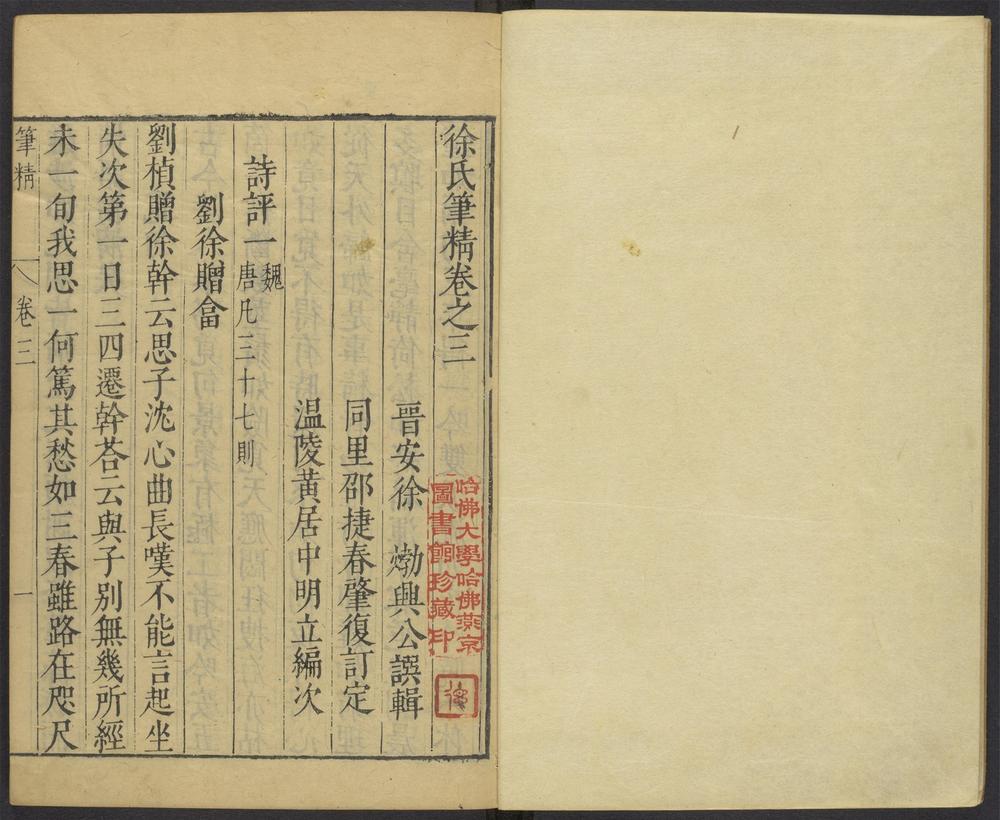 徐氏筆精卷之三
晉安徐𤊹興公譔輯
同里邵捷春肇復訂定
溫陵黃居中明立編次
詩評一魏唐凡三十七則
劉徐贈畣
劉楨贈徐幹云思子沈心曲長嘆不能言起坐
失次第一日三四遷幹荅云與子別無幾所經
未一旬我思一何篤其愁如三春雖路在咫尺
筆精
卷三
一
哈佛大學哈佛燕京
圖書館珍藏印